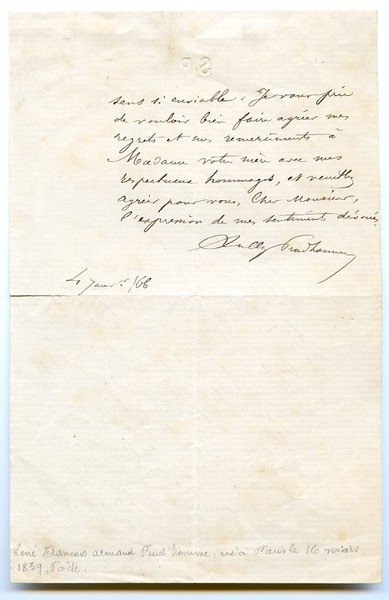 sens si enviable. Je vous prie
de vouloir bien faire agréer mes
regrets et mes remerciements à
Madame votre mère avec mes
respectueux hommages, et veuillez
agréer pour vous, Cher Monsieur,
l'expression de mes sentiments dévoués,
Sully Prudhomme
4 Janvr 66
René François armand Prud'homme, né à Paris le 16 mars
1839, Poëte.